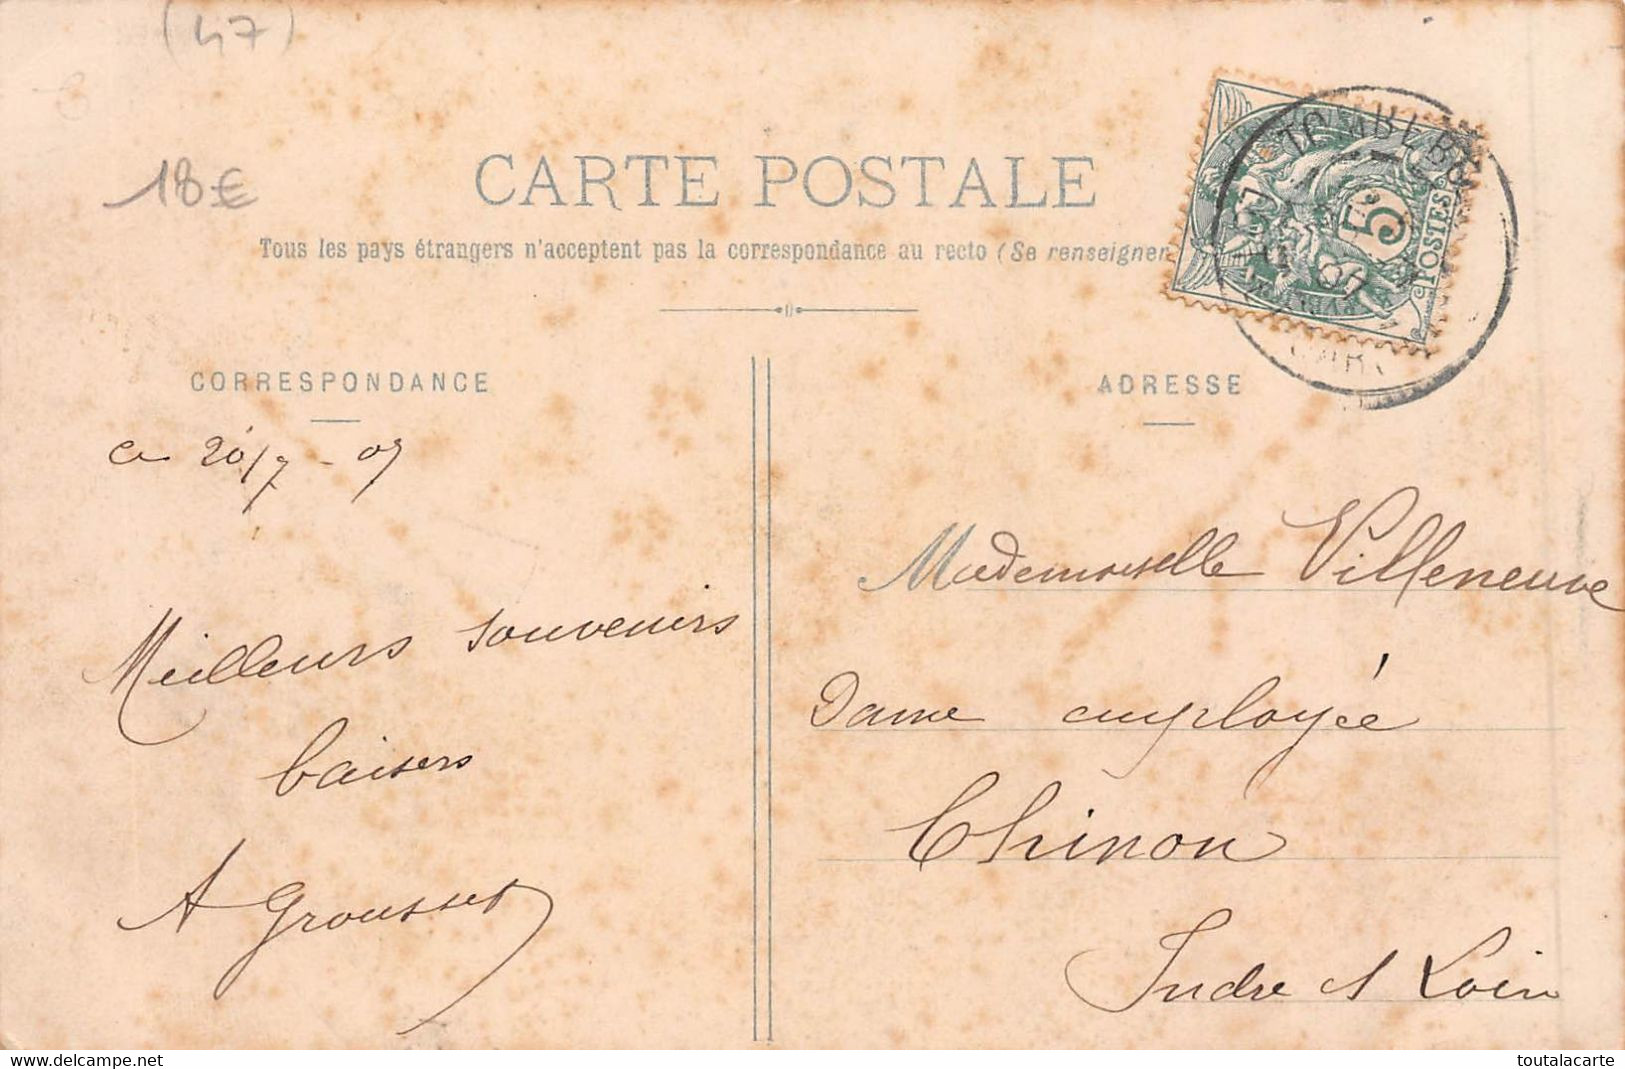 (47)
18€
CARTE POSTALE
Tous les pays étrangers n'acceptent pas la correspondance au recto (Se renseigner
5
POSTES
07
CORRESPONDANCE
ADRESSE
ce 20/7 - 07
Meilleurs souvenirs
baisers
A Grousset
Mademoiselle Villeneuve
Dame employée
Chinon
Indre et Loire
Delcampe.net
toutalacarte